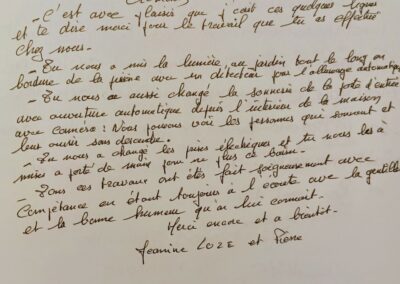 - C'est avec plaisir que j'écit ces quelques lignes
et te dire merci pour le travail que tu as effectué
chez nous.
- Tu nous a mis la lumière au jardin tout le long en
bordure de la piscine avec un détecteur pour l'allumage automatique
- Tu nous as aussi changé la sonnerie de la porte d'entrée
avec ouverture automatique depuis l'intérieur de la maison
avec caméra : Nous pouvons voir les personnes qui sonnent et
leur ouvrir sans descendre.
- Tu nous a changé les prises électriques et tu nous les à
mises a porté de main pour ne plus ce baisser.
- Tous ces travaux ont étés fait soigneusement avec
Compétence en étant toujours à l'écoute avec la gentillesse
et la bonne humeur qu'on lui connait.
Merci encore et a bientôt.
Jeannine LOZE et Pierre